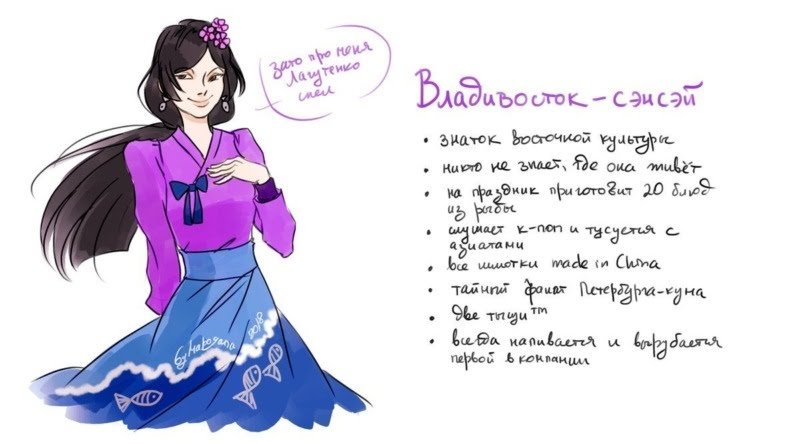 зато про меня
Лагутенко
пел
Владивосток-сэнсэй
• знаток восточной культуры
• никто не знает, где она живёт
• на праздник приготовит 20 блюд
из рыбы
• слушает к-поп и тусуется с
азиатами
• все шмотки made in China
• тайный фанат Петербурга-куна
• две тыщи™
• всегда напивается и вырубается
первой в компании
2018